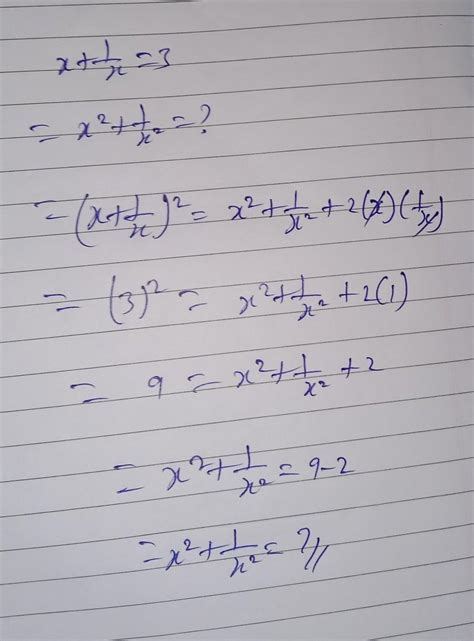 x + 1/x = 3
= x² + 1/x² = ?
= (x + 1/x)² = x² + 1/x² + 2(x)(1/x)
= (3)² = x² + 1/x² + 2(1)
= 9 = x² + 1/x² + 2
= x² + 1/x² = 9-2
= x² + 1/x² = 7//